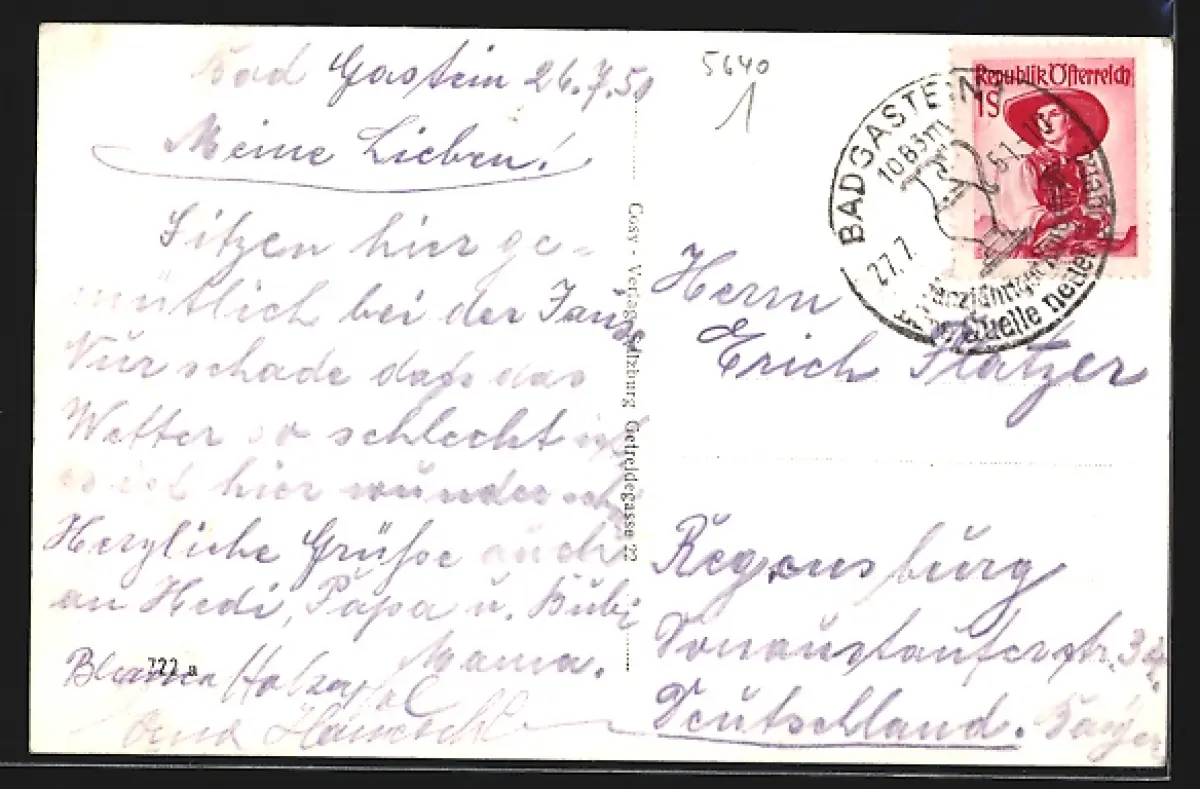 Bad Gastein 26.7.51
Meine Lieben!
Sitzen hier ge=
mütlich bei der Jause
Nur schade dass das
Wetter so schlecht ist
es ist hier wunderschön
Herzliche Grüße auch
an Hedi, Papa u. Bubi
Mama.
Holzapfel
722 a
Cosy - Verlag Salzburg Getreidegasse 22
5640
1
Republik Österreich
1S
BADGASTEIN
1083m
27.7.
51
Quelle neuer
Herrn
Erich Platzer
Regensburg
Donaustauferstr. 32.
Deutschland. Bayer